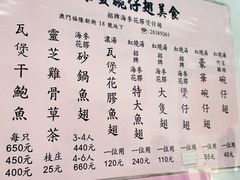 碗仔翅美食
招牌海參花膠煲仔翅
澳門福隆新街 18 號地下
☎:28389265
瓦煲干鮑魚
每只
650元
450元
400元
靈芝雞骨草茶
枝庄
25元
海參花膠
砂鍋魚翅
3-4人
440元
3-4人
660元
濃湯
瓦煲花膠魚翅
一位用
120元
紅燒湯
特大魚翅
一位用
240元
紅燒湯
大隻翅
一位用
110元
紅燒湯
豪華碗仔翅
一位用
55元
碗仔翅
一位用
40元